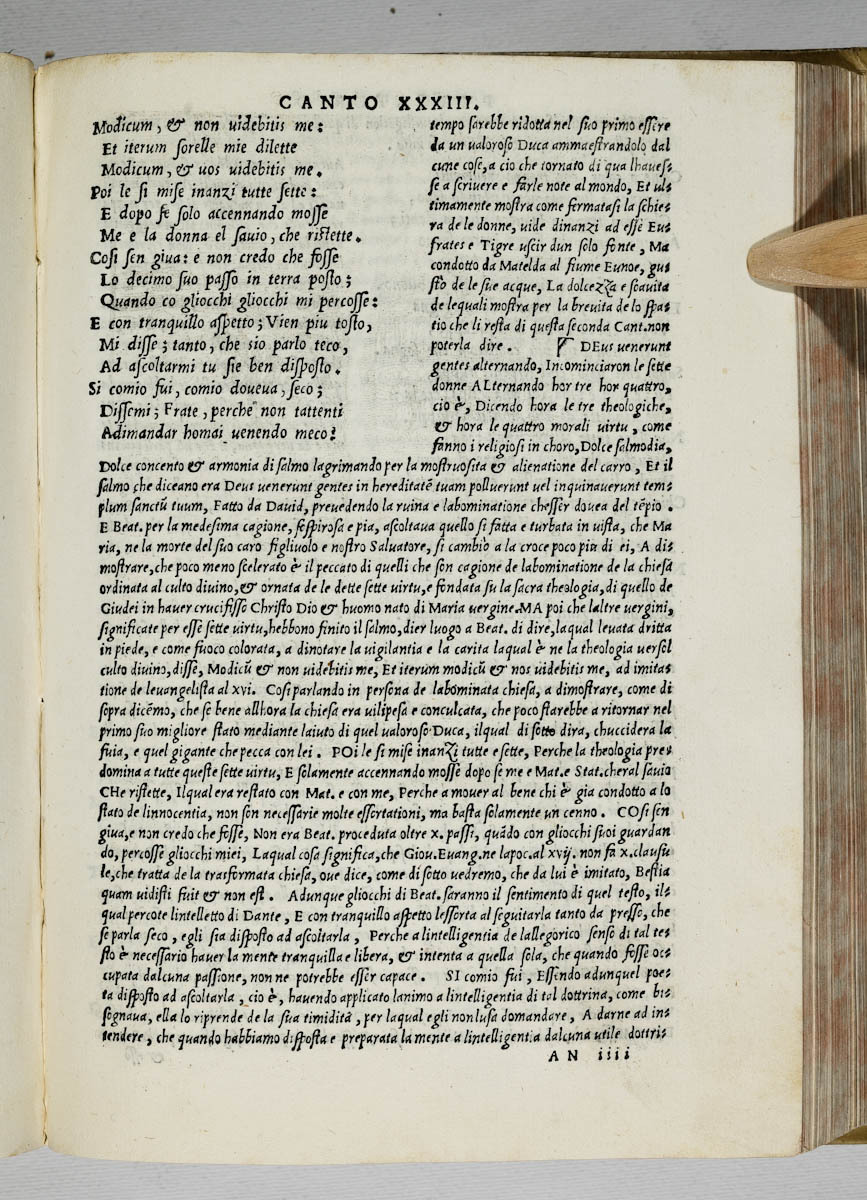 CANTO XXXIII.
Modicum, & non uidebitis me:
Et iterum sorelle mie dilette
Modicum, & uos uidebitis me.
Poi le si mise inanzi tutte sette:
E dopo se solo accennando mosse
Me e la donna el sauio, che ristette.
Cosi sen giua: e non credo che fosse
Lo decimo suo passo in terra posto;
Quando co gliocchi gliocchi mi percosse:
E con tranquillo aspetto; Vien piu tosto,
Mi disse; tanto, che sio parlo teco,
Ad ascoltarmi tu sie ben disposto.
Si comio fui, comio doueua, seco;
Dissemi; Frate, perche non tattenti
Adimandar homai uenendo meco?
tempo sarebbe ridotta nel suo primo essere
da un ualoroso Duca ammaestrandolo dal
cune cose, a cio che tornato di qua lhauef-
se a scriuere e farle note al mondo, Et ul-
timamente mostra come fermatasi la schie-
ra de le donne, uide dinanzi ad esse Eu-
frates e Tigre uscir dun solo fonte, Ma
condotto da Matelda al fiume Eunoe, gu-
stò de le sue acque, La dolcezza e soauita
de lequali mostra per la breuita de lo spa-
tio che li resta di questa seconda Cant. non
poterla dire. DEus uenerunt
gentes alternando, Incominciaron le sette
donne ALternando hor tre hor quattro,
cio è, Dicendo hora le tre theologiche,
& hora le quattro morali uirtu, come
fanno i religiosi in choro, Dolce salmodia,
Dolce concento & armonia di salmo lagrimando per la mostruosita & alienatione del carro, Et il
salmo che diceano era Deus uenerunt gentes in hereditatē tuam polluerunt uel inquinauerunt tem-
plum sanctū tuum, Fatto da Dauid, preuedendo la ruina e labominatione chesser douea del tēpio.
E Beat. per la medesima cagione, sospirosa e pia, ascoltaua quello si fatta e turbata in uista, che Ma
ria, ne la morte del suo caro figliuolo e nostro Saluatore, si cambiò a la croce poco piu di ei, A di-
mostrare, che poco meno scelerato è il peccato di quelli che son cagione de labominatione de la chiesa
ordinata al culto diuino, & ornata de le dette sette uirtu, e fondata su la sacra theologia, di quello de
Giudei in hauer crucifisso Christo Dio & huomo nato di Maria uergine. MA poi che laltre uergini,
significate per esse sette uirtu, hebbono finito il salmo, dier luogo a Beat. di dire, laqual leuata dritta
in piede, e come fuoco colorata, a dinotare la uigilantia e la carita laqual è ne la theologia uersol
culto diuino, disse, Modicū & non uidebitis me, Et iterum modicū & uos uidebitis me, ad imita-
tione de leuangelista al xvi. Cosi parlando in persona de labominata chiesa, a dimostrare, come di
sopra dicēmo, che se bene allhora la chiesa era uilipesa e conculcata, che poco starebbe a ritornar nel
primo suo migliore stato mediante laiuto di quel ualoroso Duca, ilqual di sotto dira, chuccidera la
fuia, e quel gigante che pecca con lei. POi le si mise inanzi tutte e sette, Perche la theologia pre-
domina a tutte queste sette uirtu, E solamente accennando mosse dopo se me e Mat. e Stat. cheral sauio
CHe ristette, Ilqual era restato con Mat. e con me, Perche a mouer al bene chi è gia condotto a lo
stato de linnocentia, non son necessarie molte essortationi, ma basta solamente un cenno. COsi sen
giua, e non credo che fosse, Non era Beat. proceduta oltre x. passi, quādo con gliocchi suoi guardan
do, percosse gliocchi miei, Laqual cosa significa, che Giou. Euang. ne lapoc. al xvij. non fa x. clausu
le, che tratta de la trasformata chiesa, oue dice, come di sotto uedremo, che da lui è imitato, Bestia
quam uidisti fuit & non est. Adunque gliocchi di Beat. saranno il sentimento di quel testo, il-
qual percote lintelletto di Dante, E con tranquillo aspetto lessorta al seguitarla tanto da presso, che
se parla seco, egli sia disposto ad ascoltarla, Perche a lintelligentia de lallegorico senso di tal te-
sto è necessario hauer la mente tranquilla e libera, & intenta a quella sola, che quando fosse oc-
cupata dalcuna passione, non ne potrebbe esser capace. SI comio fui, Essendo adunquel poe-
ta disposto ad ascoltarla, cio è, hauendo applicato lanimo a lintelligentia di tal dottrina, come bi-
sognaua, ella lo riprende de la sua timidità, per laqual egli non lusa domandare, A darne ad in-
tendere, che quando habbiamo disposta e preparata la mente a lintelligentia dalcuna utile dottri-
AN iiii